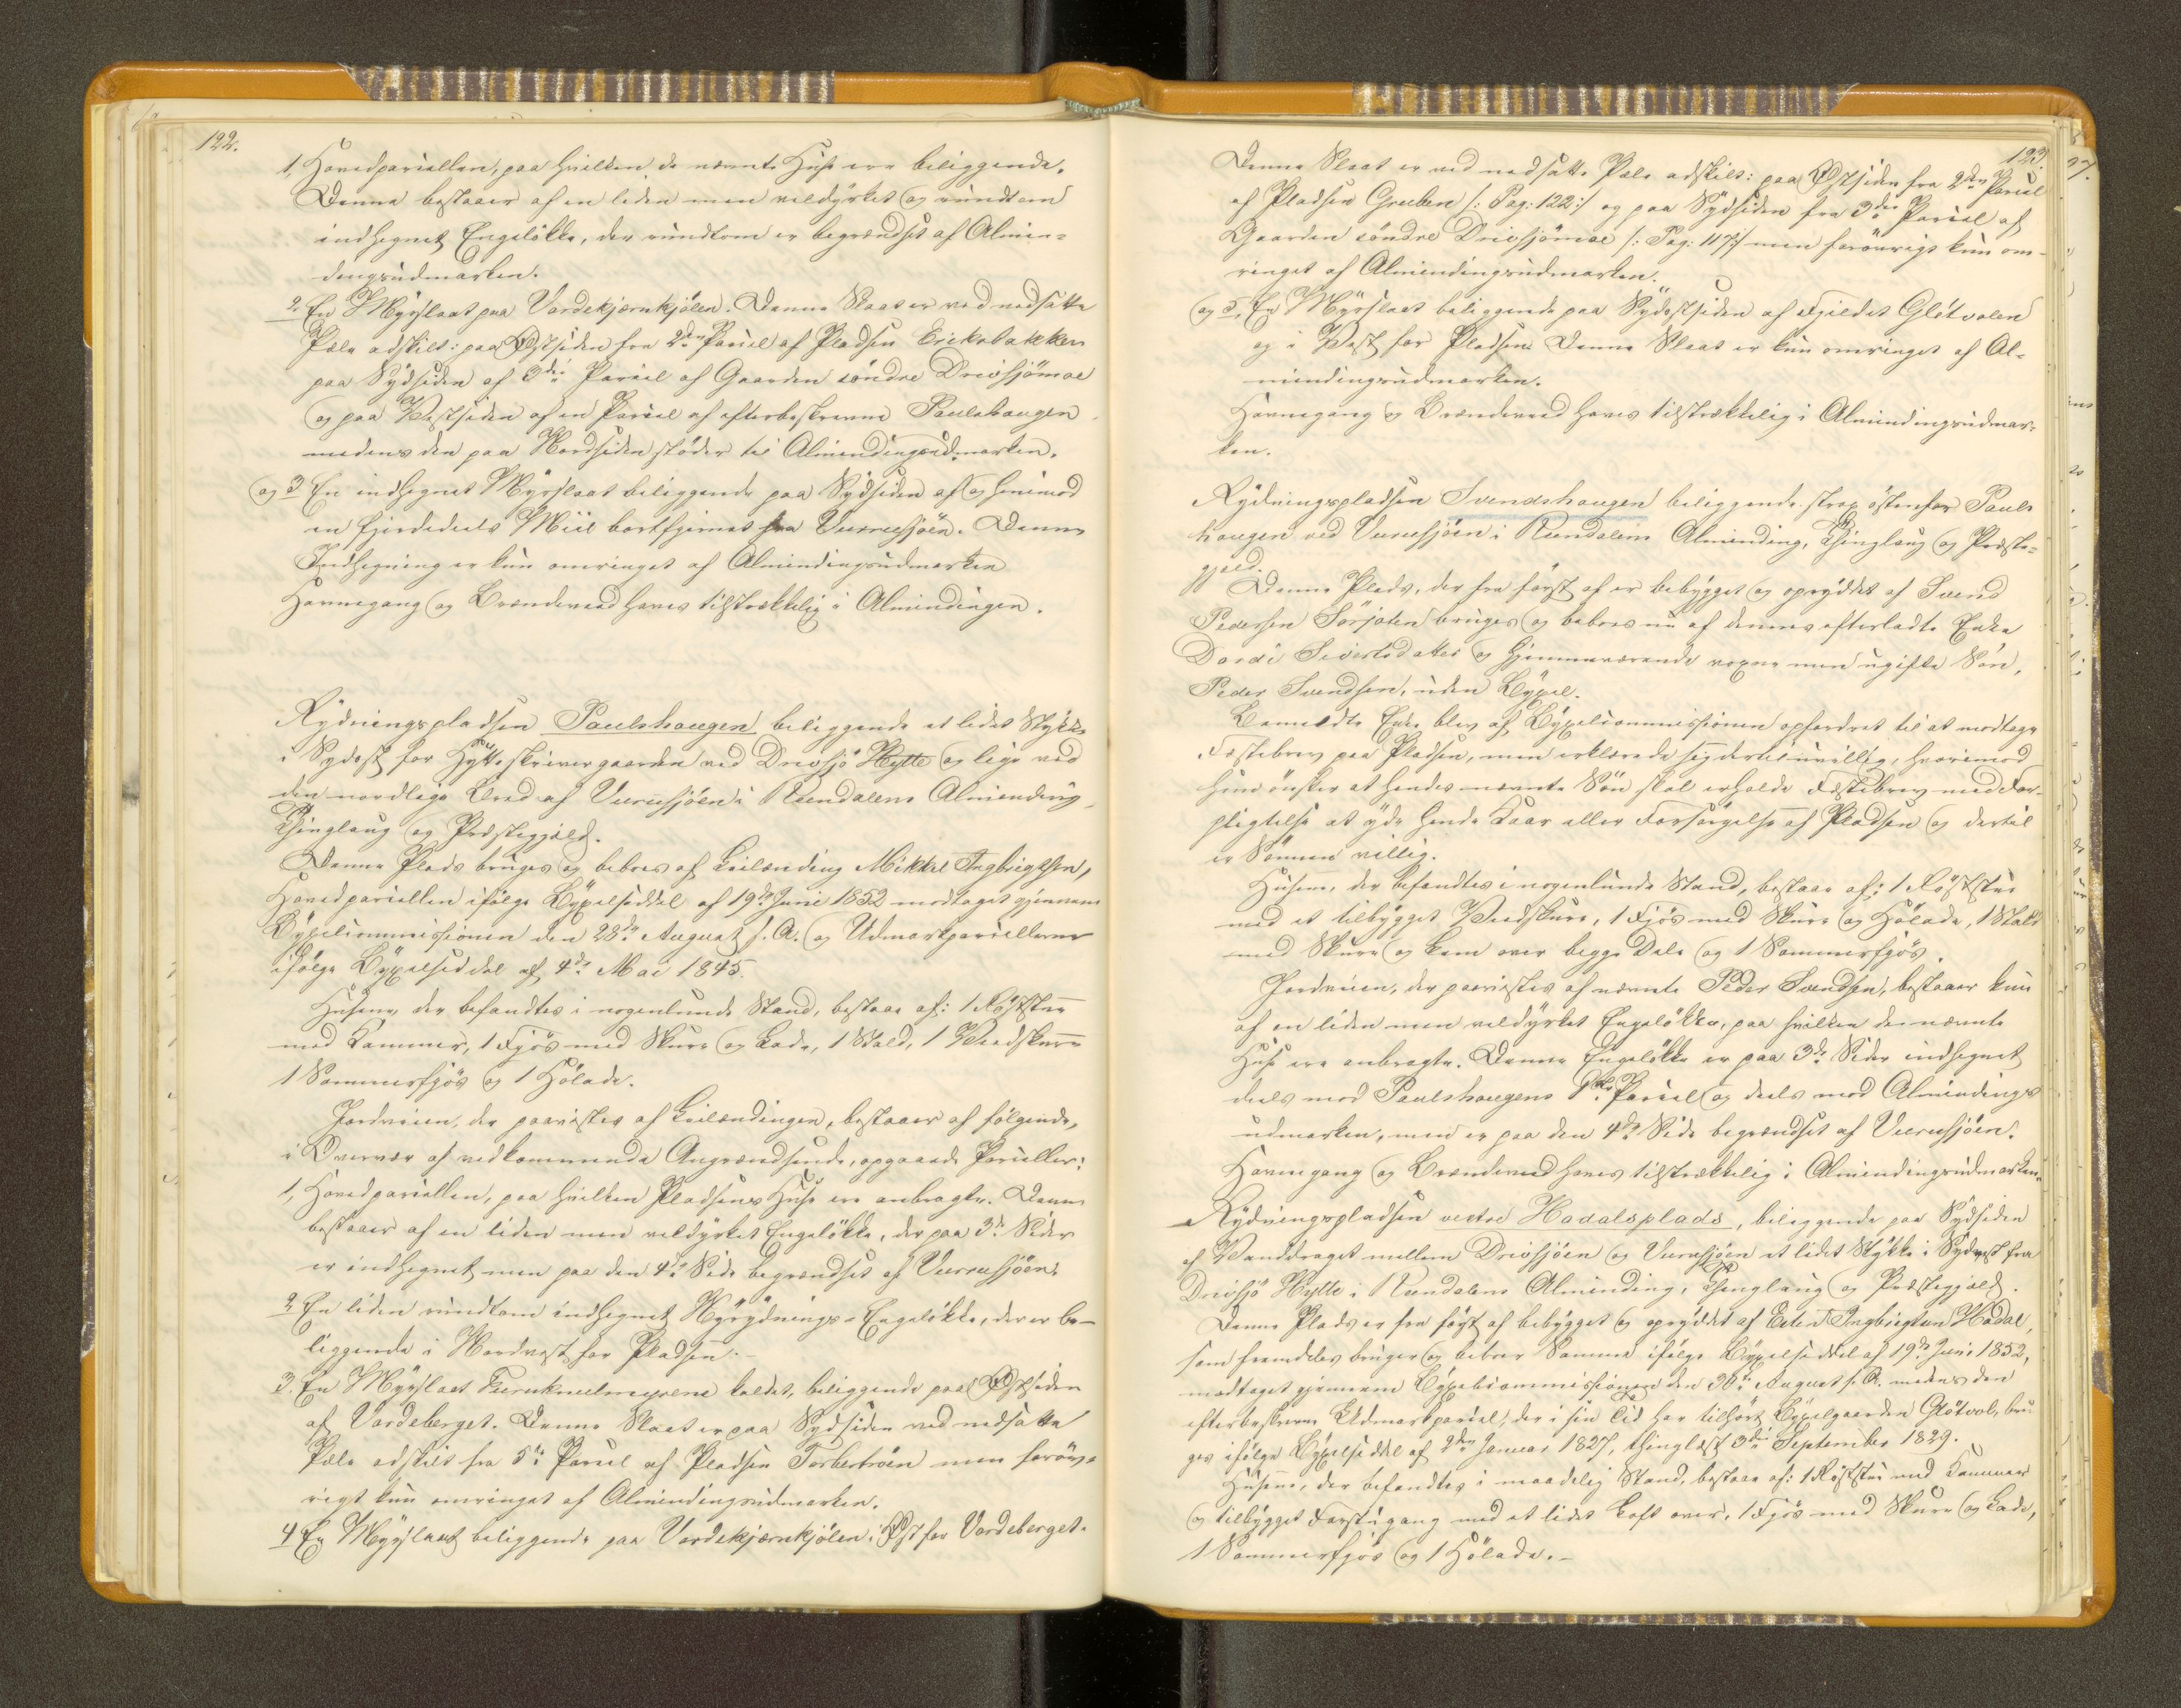 122.
1, Hovedparcellen, paa hvilken de nævnte Huse ere beliggende.
Denne bestaaer af en liden men veldyrket og rundtom
indhegnet Engeløkke, der rundtom er begrændset af Almin-
dingsudmarken.
2. En Myrslaat paa Vordekjærnkjölen. Denne Slaat er ved nedsatte
Pæle adskilt: paa Østsiden fra 2den Parcel af Pladsen Eriksbakken
paa Sydsiden af 3die Parcel af Gaarden söndre Drivsjömoe
og paa Vestsiden af en Parcel af efterbeskrevne Paulshaugen,
medens den paa Nordsiden støder til Almindingsudmarken.
og 3 En indhegnet Myrslaat beliggende paa Sydsiden af og henimod
en fjerdedeels Miil bortfjernet fra Vurrusjöen. Denne
Indhegning er kun omringet af Almindingsudmarken
Havnegang og Brændeved haves tilstrækkelig i Almindingen.
Rydningspladsen Paulshaugen beliggende et lidet Stykke
i Sydost for Hytteskrivergaarden ved Drivsjö Hytte og lige ved
den nordlige Bred af Vurrusjöen i Rendalens Alminding,
Thinglaug og Præstegjeld.
Denne Plads bruges og beboes af Leilænding Mikkel Ingbrigtsen,
Hovedparcellen ifølge Bygselseddel af 19de Juni 1852 modtaget gjennem
Bygselcommissionen den 28de August s. A. og Udmarksparcellerne
ifølge Bygselseddel af 4de Mai 1845.
Husene, der befandtes i nogenlunde Stand, bestaae af: 1 Røststue
med Kammer, 1 Fjös med Skure og Lade, 1 Stald, 1 Vedskure
1 Sommerfjös og 1 Hölade.
Jordveien, der paavistes af Leilændingen, bestaaer af følgende,
i Overvær af vedkommende Angrændsende, opgaaede Parceller:
1, Hovedparcellen, paa hvilken Pladsens Huse ere anbragte. Denne
bestaaer af en liden men veldyrket Engeløkke, der paa 3de Sider
er indhegnet men paa den 4de Side begrændset af Vurrusjöen.
2 En liden rundtom indhegnet Nyrydnings-Engeløkke, der er be-
liggende i Nordvest for Pladsen.-
3. En Myrslaat Furuknulmyrene kaldet, beliggende paa Østsiden
af Vordeberget. Denne Slaat er paa Sydsiden ved nedsatte
Pæle adskilt fra 5te Parcel af Pladsen Torbertröen men forøv-
rigt kun omringet af Almindingsudmarken.
4 En Myrslaat beliggende paa Vordekjærnkjölen i Øst for Vordeberget.
123.
Denne Slaat er ved nedsatte Pæle adskilt: paa Østsiden fra 2den Parcel
af Pladsen Gruben /: Pag: 122 :/ og paa Sydsiden fra 3die Parcel af
Gaarden söndre Drivsjömoe /: Pag: 117 :/ men forøvrigt kun om-
ringet af Almindingsudmarken.
og 5, En Myrslaat beliggende paa Sydostsiden af Fjeldet Glötvolen
og i Vest for Pladsen. Denne Slaat er kun omringet af Al-
mindingsudmarken.
Havnegang og Brændeved haves tilstrækkelig i Almindingsudmar-
ken.
Rydningspladsen Svendshaugen beliggende strax østenfor Pauls
haugen ved Vurrusjöen i Rendalens Alminding, Thinglaug og Præste-
gjeld.
Denne Plads, der fra først af er bebygget og opryddet af Svend
Pedersen Sörjoten bruges og beboes nu af dennes efterladte Enke
Dordi Sivertsdatter og hjemmeværende voxne men ugifte Søn,
Peder Svendsen, uden Bygsel.
Bemeldte Enke blev af Bygselcommissionen opfordret til at modtage
Fæstebrev paa Pladsen, men erklærede sig dertil uvillig, hvorimod
hun ønsker at hendes nævnte Søn skal erholde Fæstebrev med For-
pligtelse at yde hende Kaar eller Forsørgelse af Pladsen og dertil
er Sønnen villig.
Husene, der befandtes i nogenlunde Stand, bestaae af: 1 Røststue
med et tilbygget Vedskure, 1 Fjös med Skure og Hölade, 1 Stald
med Skure og Lem over begge Dele og 1 Sommerfjös.
Jordveien, der paavistes af nævnte Peder Svendsen, bestaaer kun
af en liden men veldyrket Engeløkke, paa hvilken de nævnte
Huse ere anbragte. Denne Engeløkke er paa 3de Sider indhegnet
deels mod Paulshaugens 1ste Parcel og deels mod Almindings
udmarken, men er paa den 4de Side begrændset af Vurrusjöen.
Havnegang og Brændeved haves tilstrækkelig i Almindingsudmarken.
Rydningspladsen vestre Hadalsplads, beliggende paa Sydsiden
af Vanddraget mellem Drivsjöen og Vurrusjöen et lidet Stykke i Sydvest fra
Drivsjö Hytte i Rendalens Alminding, Thinglaug og Præstegjeld.
Denne Plads er fra først af bebygget og opryddet af Esten Ingbrigtsen Hådal,
som fremdeles bruger og beboer Samme ifølge Bygselseddel af 19de Juni 1852,
modtaget gjennem Bygselcommissionen den 30te August s. A. medens den
efterbeskrevne Udmarksparcel, der i sin Tid har tilhørt Bygselgaarden Glötvol, bru
ges ifølge Bygselseddel af 2den Januar 1827, thinglæst 3die September 1829.
Husene, der befandtes i maadelig Stand, bestaae af: 1 Røststue med Kammer
og tilbygget Forstugang med et lidet Loft over, 1 Fjös med Skure og Lade,
1 Sommerfjös og 1 Hölade.-